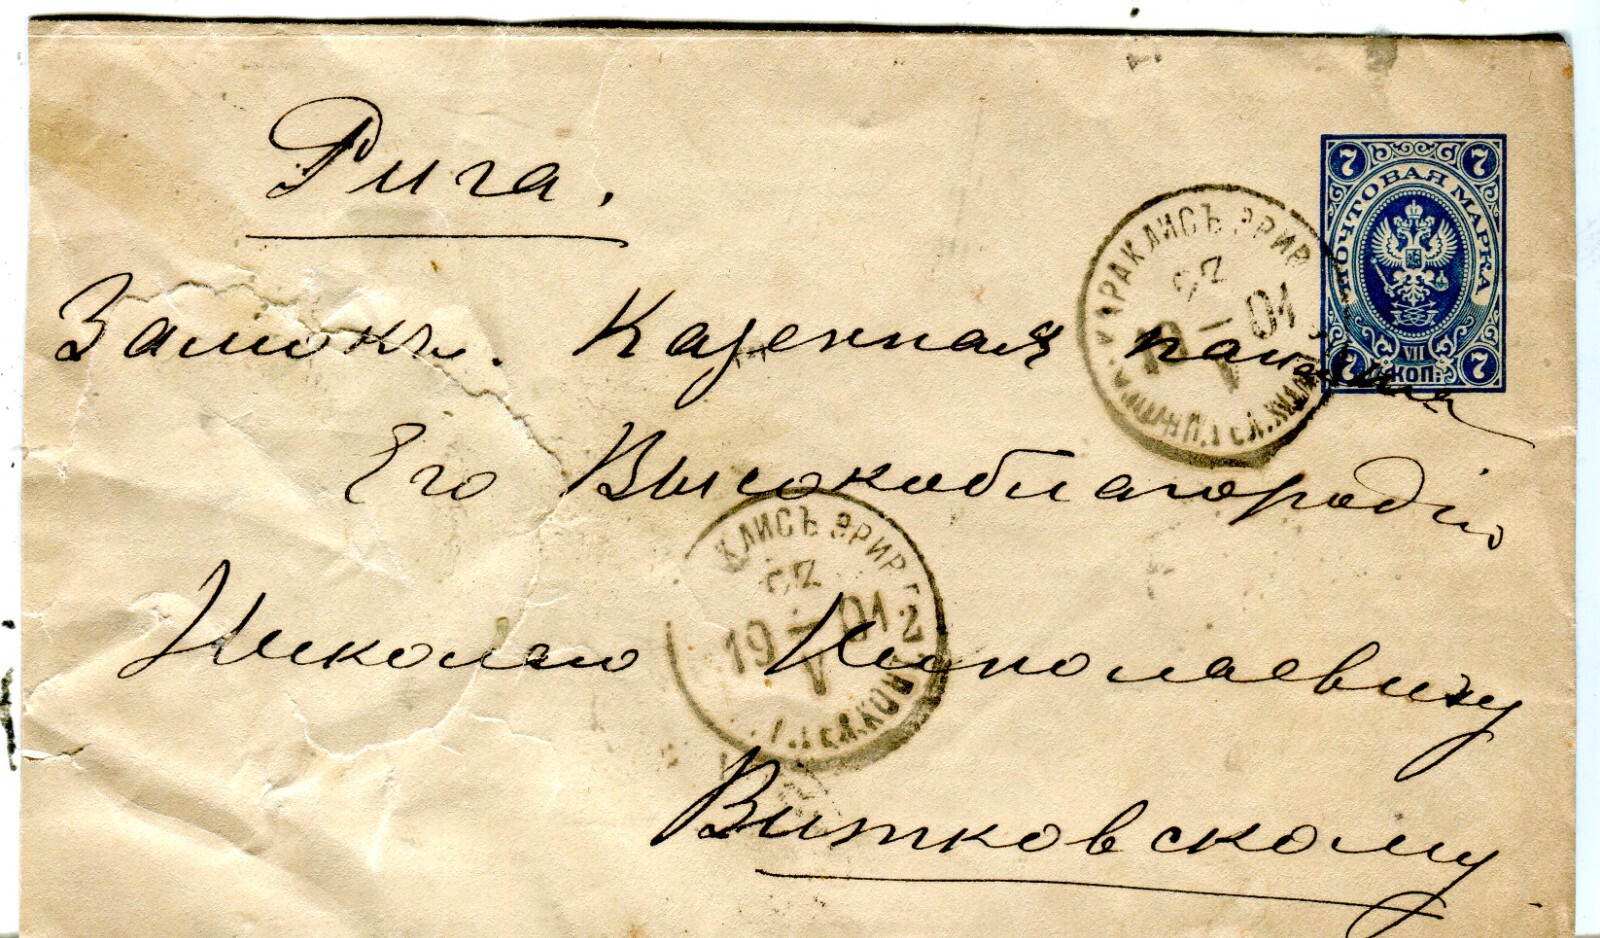 Рига.
Замокъ. Казенная палата
Его Высокоблагородію
Николаю Николаевичу
Витковскому
7 7
ПОЧТОВАЯ МАРКА
VII
КОП.
7 7
КАРАКЛИСЪ ЭРИВ
19 01
V
КЛИСЪ ЭРИВ Г.
19 01 2
V